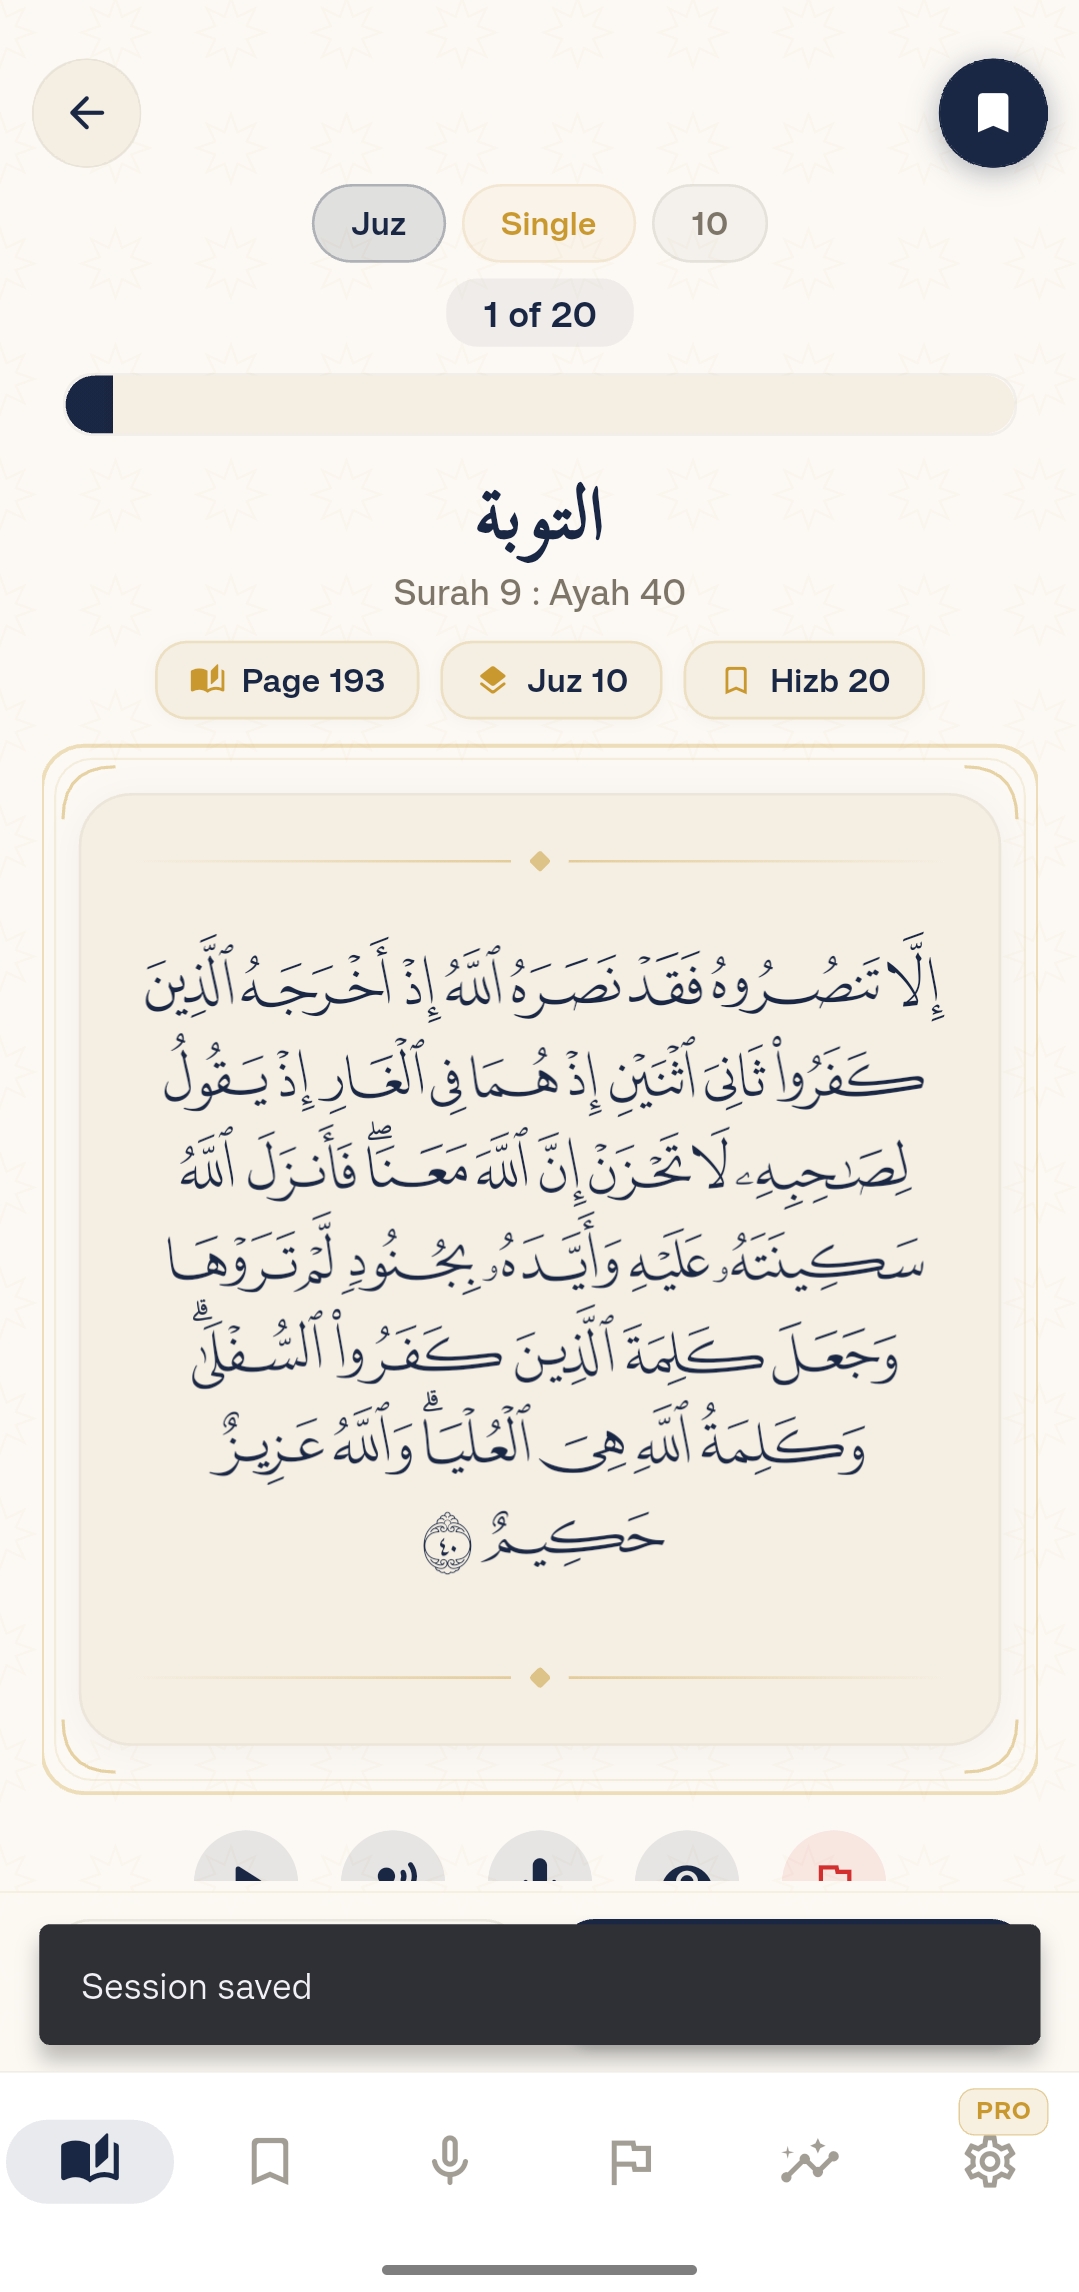 Juz
Single
10
1 of 20
التوبة
Surah 9 : Ayah 40
Page 193
Juz 10
Hizb 20
إِلَّا تَنصُرُوهُ فَقَدْ نَصَرَهُ ٱللَّهُ إِذْ أَخْرَجَهُ ٱلَّذِينَ
كَفَرُوا۟ ثَانِىَ ٱثْنَيْنِ إِذْ هُمَا فِى ٱلْغَارِ إِذْ يَقُولُ
لِصَـٰحِبِهِۦ لَا تَحْزَنْ إِنَّ ٱللَّهَ مَعَنَا ۖ فَأَنزَلَ ٱللَّهُ
سَكِينَتَهُۥ عَلَيْهِ وَأَيَّدَهُۥ بِجُنُودٍ لَّمْ تَرَوْهَا
وَجَعَلَ كَلِمَةَ ٱلَّذِينَ كَفَرُوا۟ ٱلسُّفْلَىٰ ۗ
وَكَلِمَةُ ٱللَّهِ هِىَ ٱلْعُلْيَا ۗ وَٱللَّهُ عَزِيزٌ
حَكِيمٌ ٤٠
Session saved
PRO